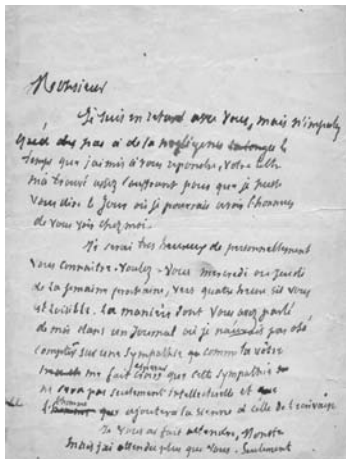 Monsieur
Je suis en retard avec vous, mais n'imputez
pas à de la négligence le
temps que j'ai mis à vous répondre, votre lettre
m'a trouvé assez souffrant pour que je
vous dire le jour où je pourrais avoir l'honneur
de vous voir chez moi.
Je serai très heureux de personnellement
vous connaître. Voulez-vous mercredi ou jeudi
de la semaine prochaine, vers quatre heures s'il vous
est loisible. La manière dont vous avez parlé
de moi dans un journal où je pas osé
compter sur une sympathie comme la vôtre
me fait que cette sympathie
ne sera pas seulement intellectuelle et
l'homme ajoutera la sienne à celle de l'écrivain
Je vous ai fait attendre, Monsieur
mais j'ai attendu plus que vous. Seulement